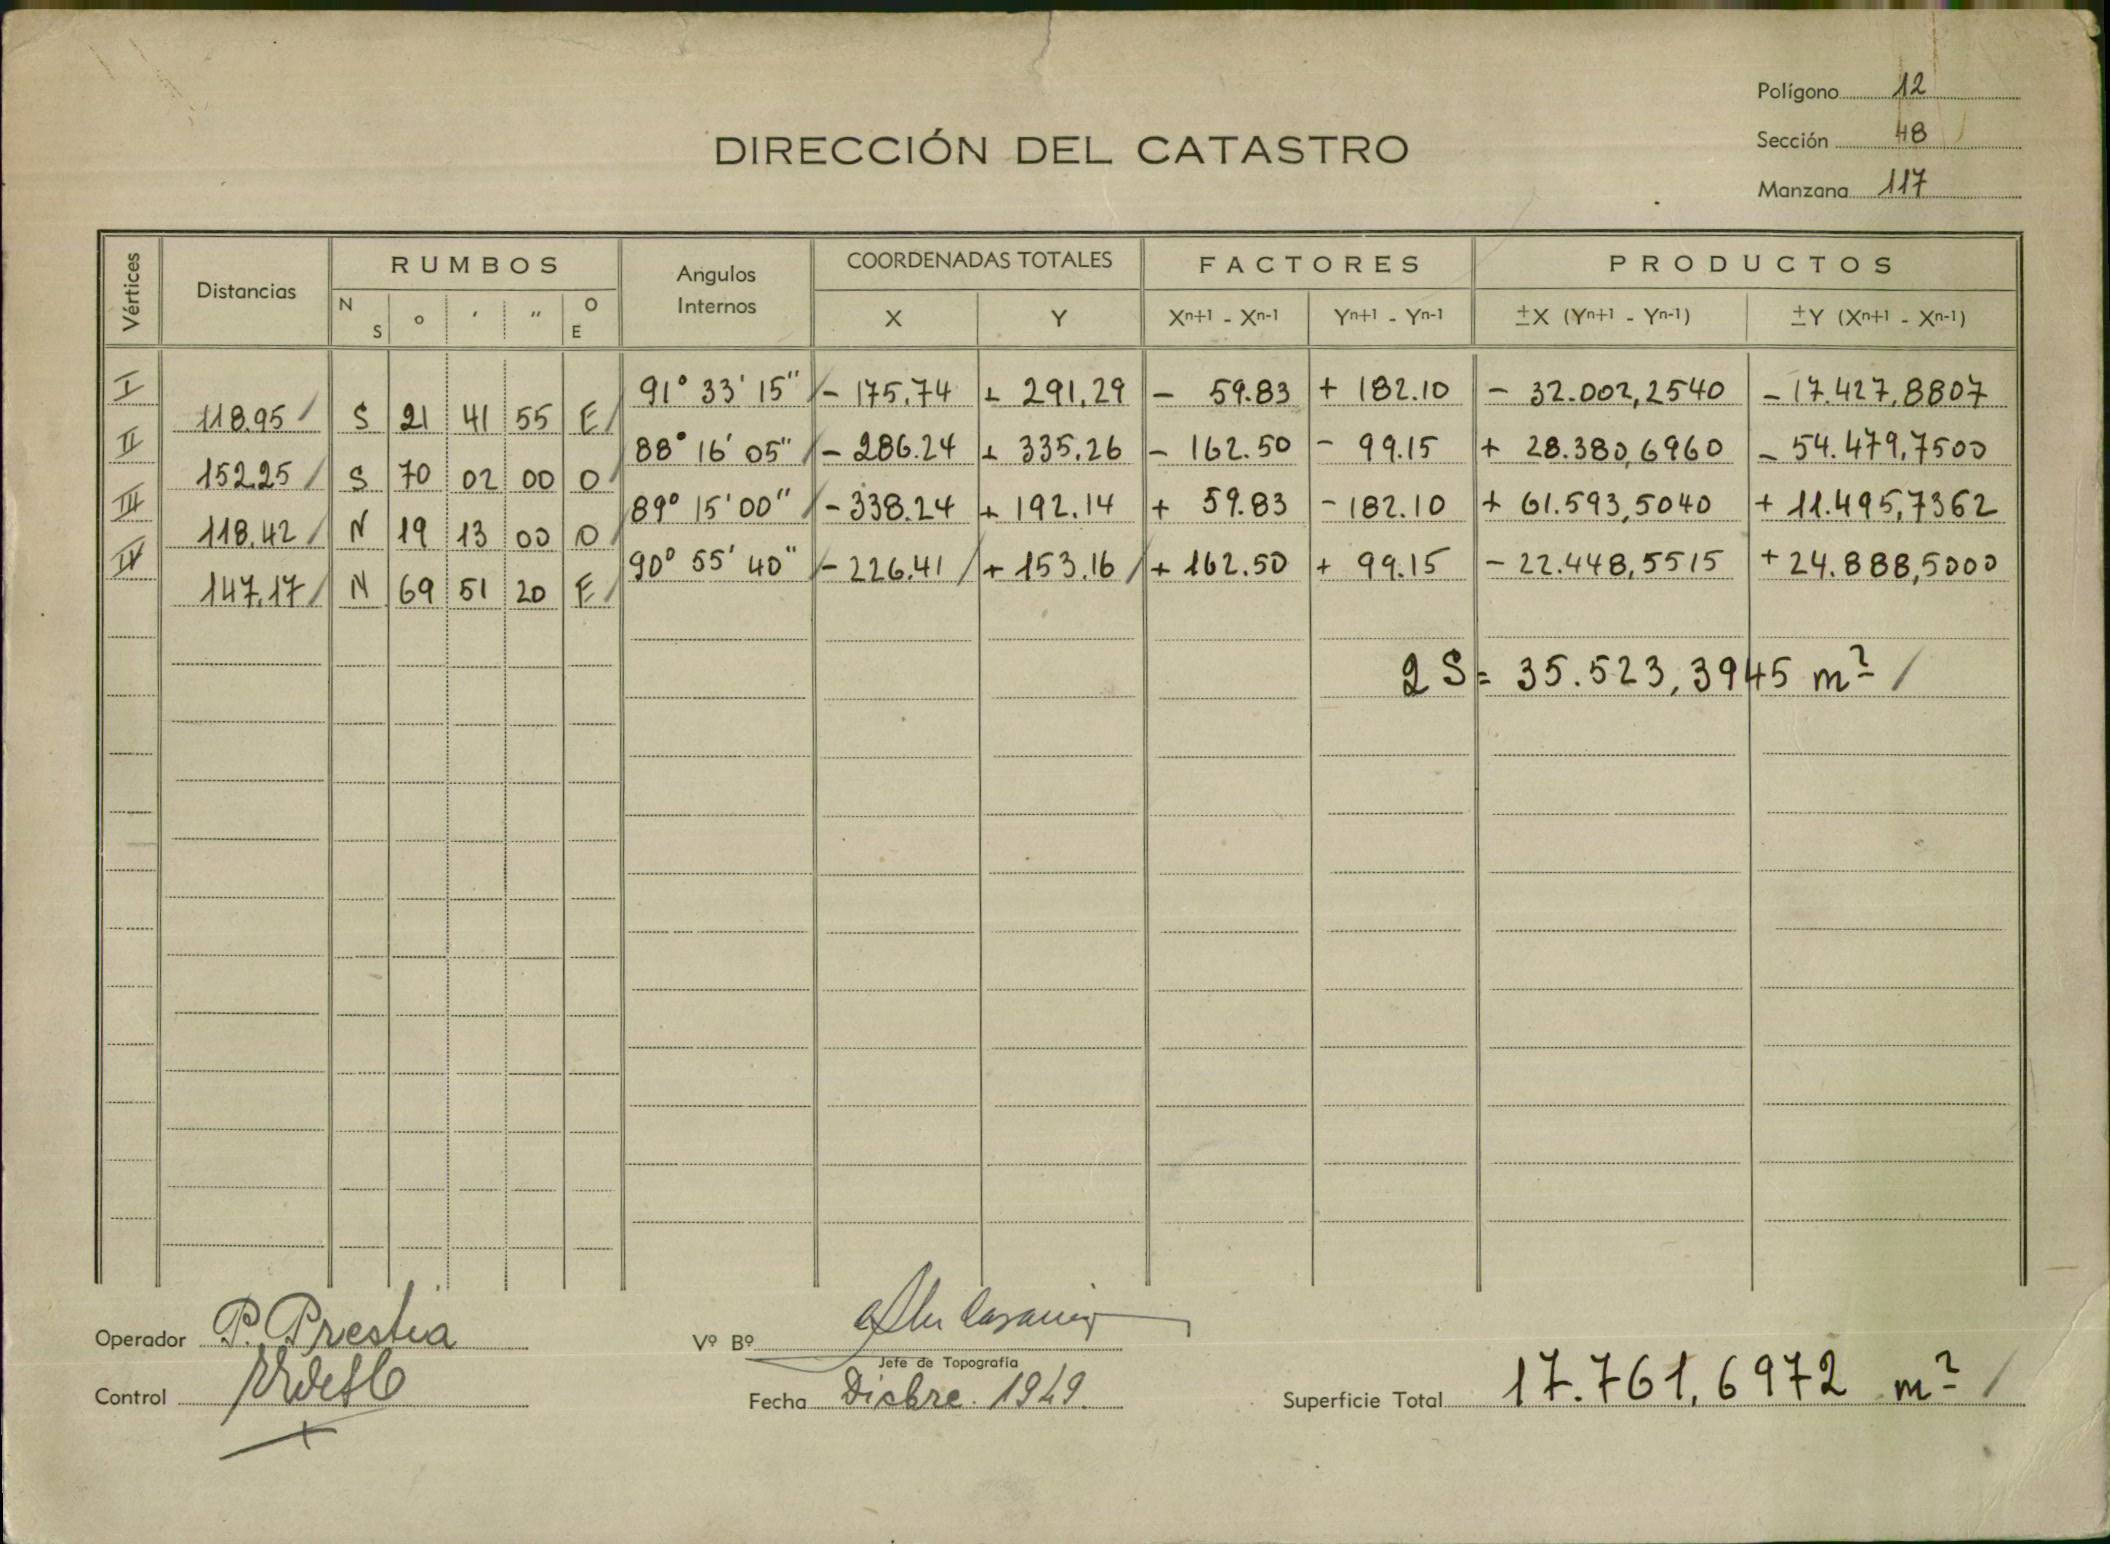 Polígono 12
DIRECCIÓN DEL CATASTRO
Sección 48
Manzana 117
Vértices Distancias RUMBOS Angulos Internos COORDENADAS TOTALES FACTORES PRODUCTOS
N S o ′ ″ O E X Y Xn+1 - Xn-1 Yn+1 - Yn-1 ±X (Yn+1 - Yn-1) ±Y (Xn+1 - Xn-1)
I 91° 33' 15" - 175.74 + 291.29 - 59.83 + 182.10 - 32.002,2540 - 17.427,8807
118.95 S 21 41 55 E
II 88° 16' 05" - 286.24 + 335.26 - 162.50 - 99.15 + 28.380,6960 - 54.479,7500
152.25 S 70 02 00 O
III 89° 15' 00" - 338.24 + 192.14 + 59.83 - 182.10 + 61.593,5040 + 11.495,7362
118.42 N 19 13 00 O
IV 90° 55' 40" - 226.41 + 153.16 + 162.50 + 99.15 - 22.448,5515 + 24.888,5000
147.17 N 69 51 20 E
2 S = 35.523,3945 m²
Operador P. Prestia
Vº Bº
Jefe de Topografía
Control
Fecha Dicbre. 1949.
Superficie Total 17.761,6972 m²